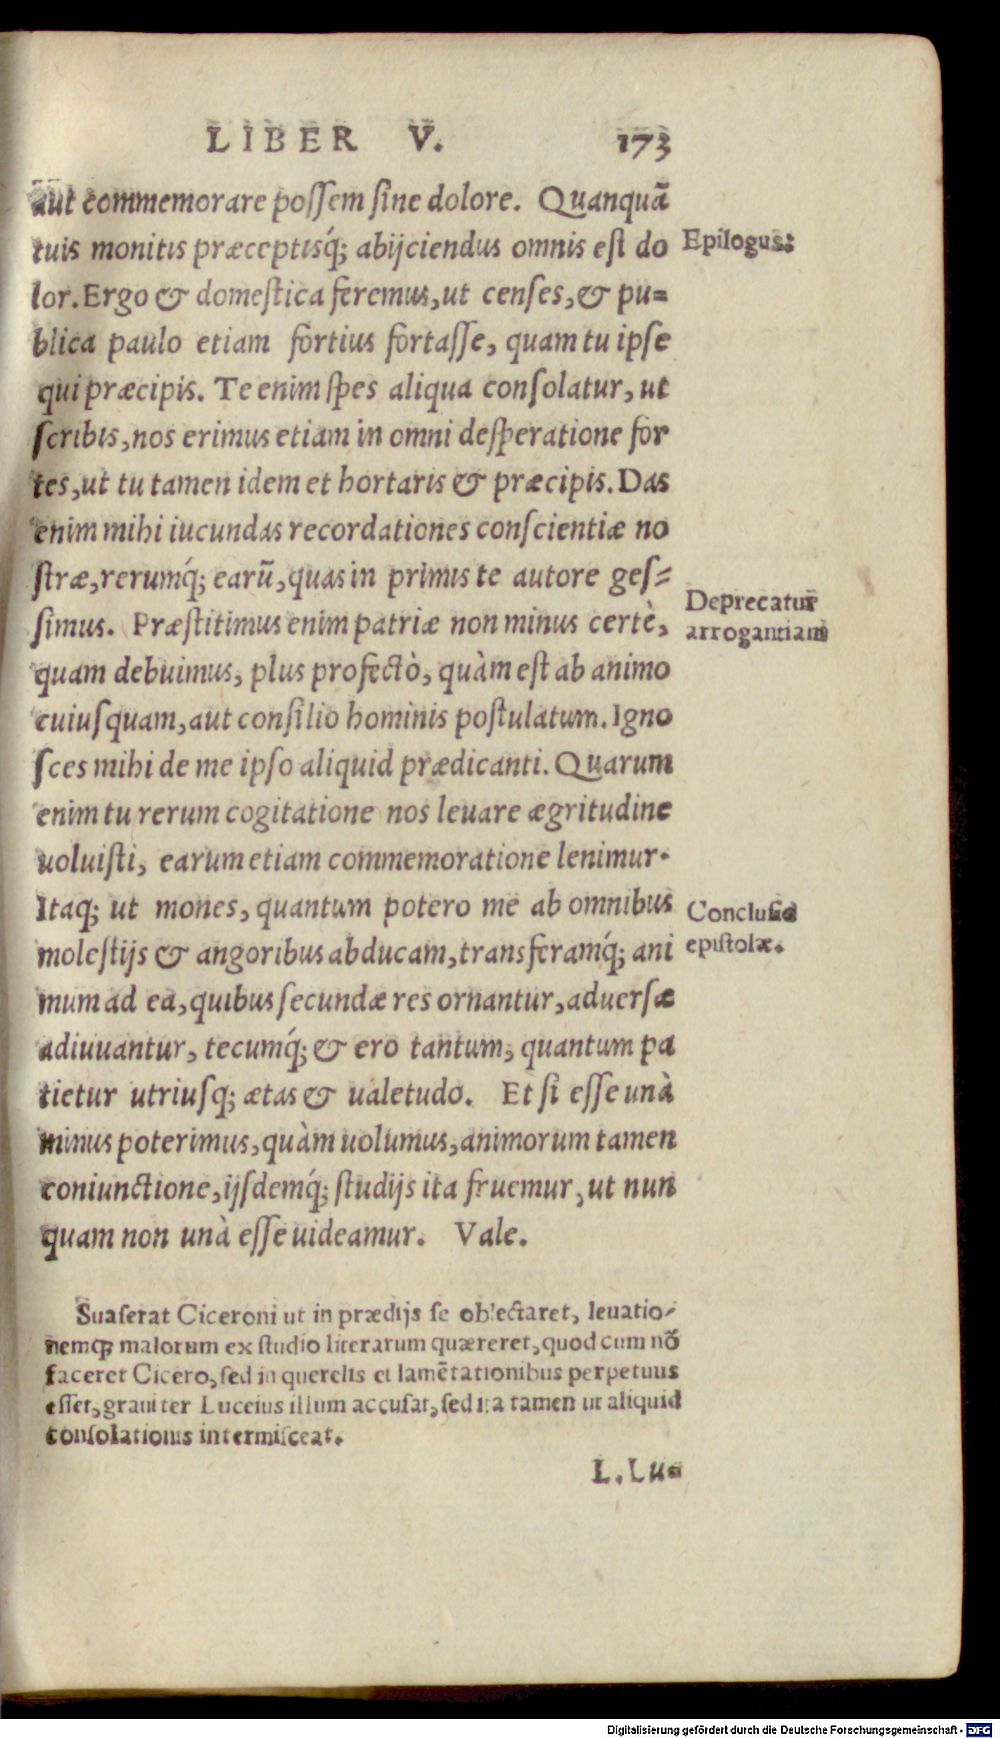 LIBER V. 173
aut commemorare possem sine dolore. Quanquã
tuis monitis præceptisq́; abijciendus omnis est do
lor. Ergo & domestica feremus, ut censes, & pu=
blica paulo etiam fortius fortasse, quam tu ipse
qui præcipis. Te enim spes aliqua consolatur, ut
scribis, nos erimus etiam in omni desperatione for
tes, ut tu tamen idem et hortaris & præcipis. Das
enim mihi iucundas recordationes conscientiæ no
stræ, rerumq́; earũ, quas in primis te autore ges=
simus. Præstitimus enim patriæ non minus certè,
quam debuimus, plus profectò, quàm est ab animo
cuiusquam, aut consilio hominis postulatum. Igno
sces mihi de me ipso aliquid prædicanti. Quarum
enim tu rerum cogitatione nos leuare ægritudine
uoluisti, earum etiam commemoratione lenimur.
Itaq; ut mones, quantum potero me ab omnibus
molestijs & angoribus abducam, transferamq́; ani
mum ad ea, quibus secundæ res ornantur, aduersæ
adiuuantur, tecumq́; & ero tantum, quantum pa
tietur utriusq; ætas & ualetudo. Et si esse unà
minus poterimus, quàm uolumus, animorum tamen
coniunctione, ijsdemq́; studijs ita fruemur, ut nun
quam non unà esse uideamur. Vale.
Epilogus:
Deprecatur
arrogantiam
Conclusio
epistolæ.
Suaserat Ciceroni ut in prædijs se oblectaret, leuatio-
nemq; malorum ex studio literarum quæreret, quod cum nõ
faceret Cicero, sed in querelis et lamẽtationibus perpetuus
esset, grauiter Lucceius illum accusat, sed ita tamen ut aliquid
consolationis intermisceat.
L. Lu=
Digitalisierung gefördert durch die Deutsche Forschungsgemeinschaft - DFG